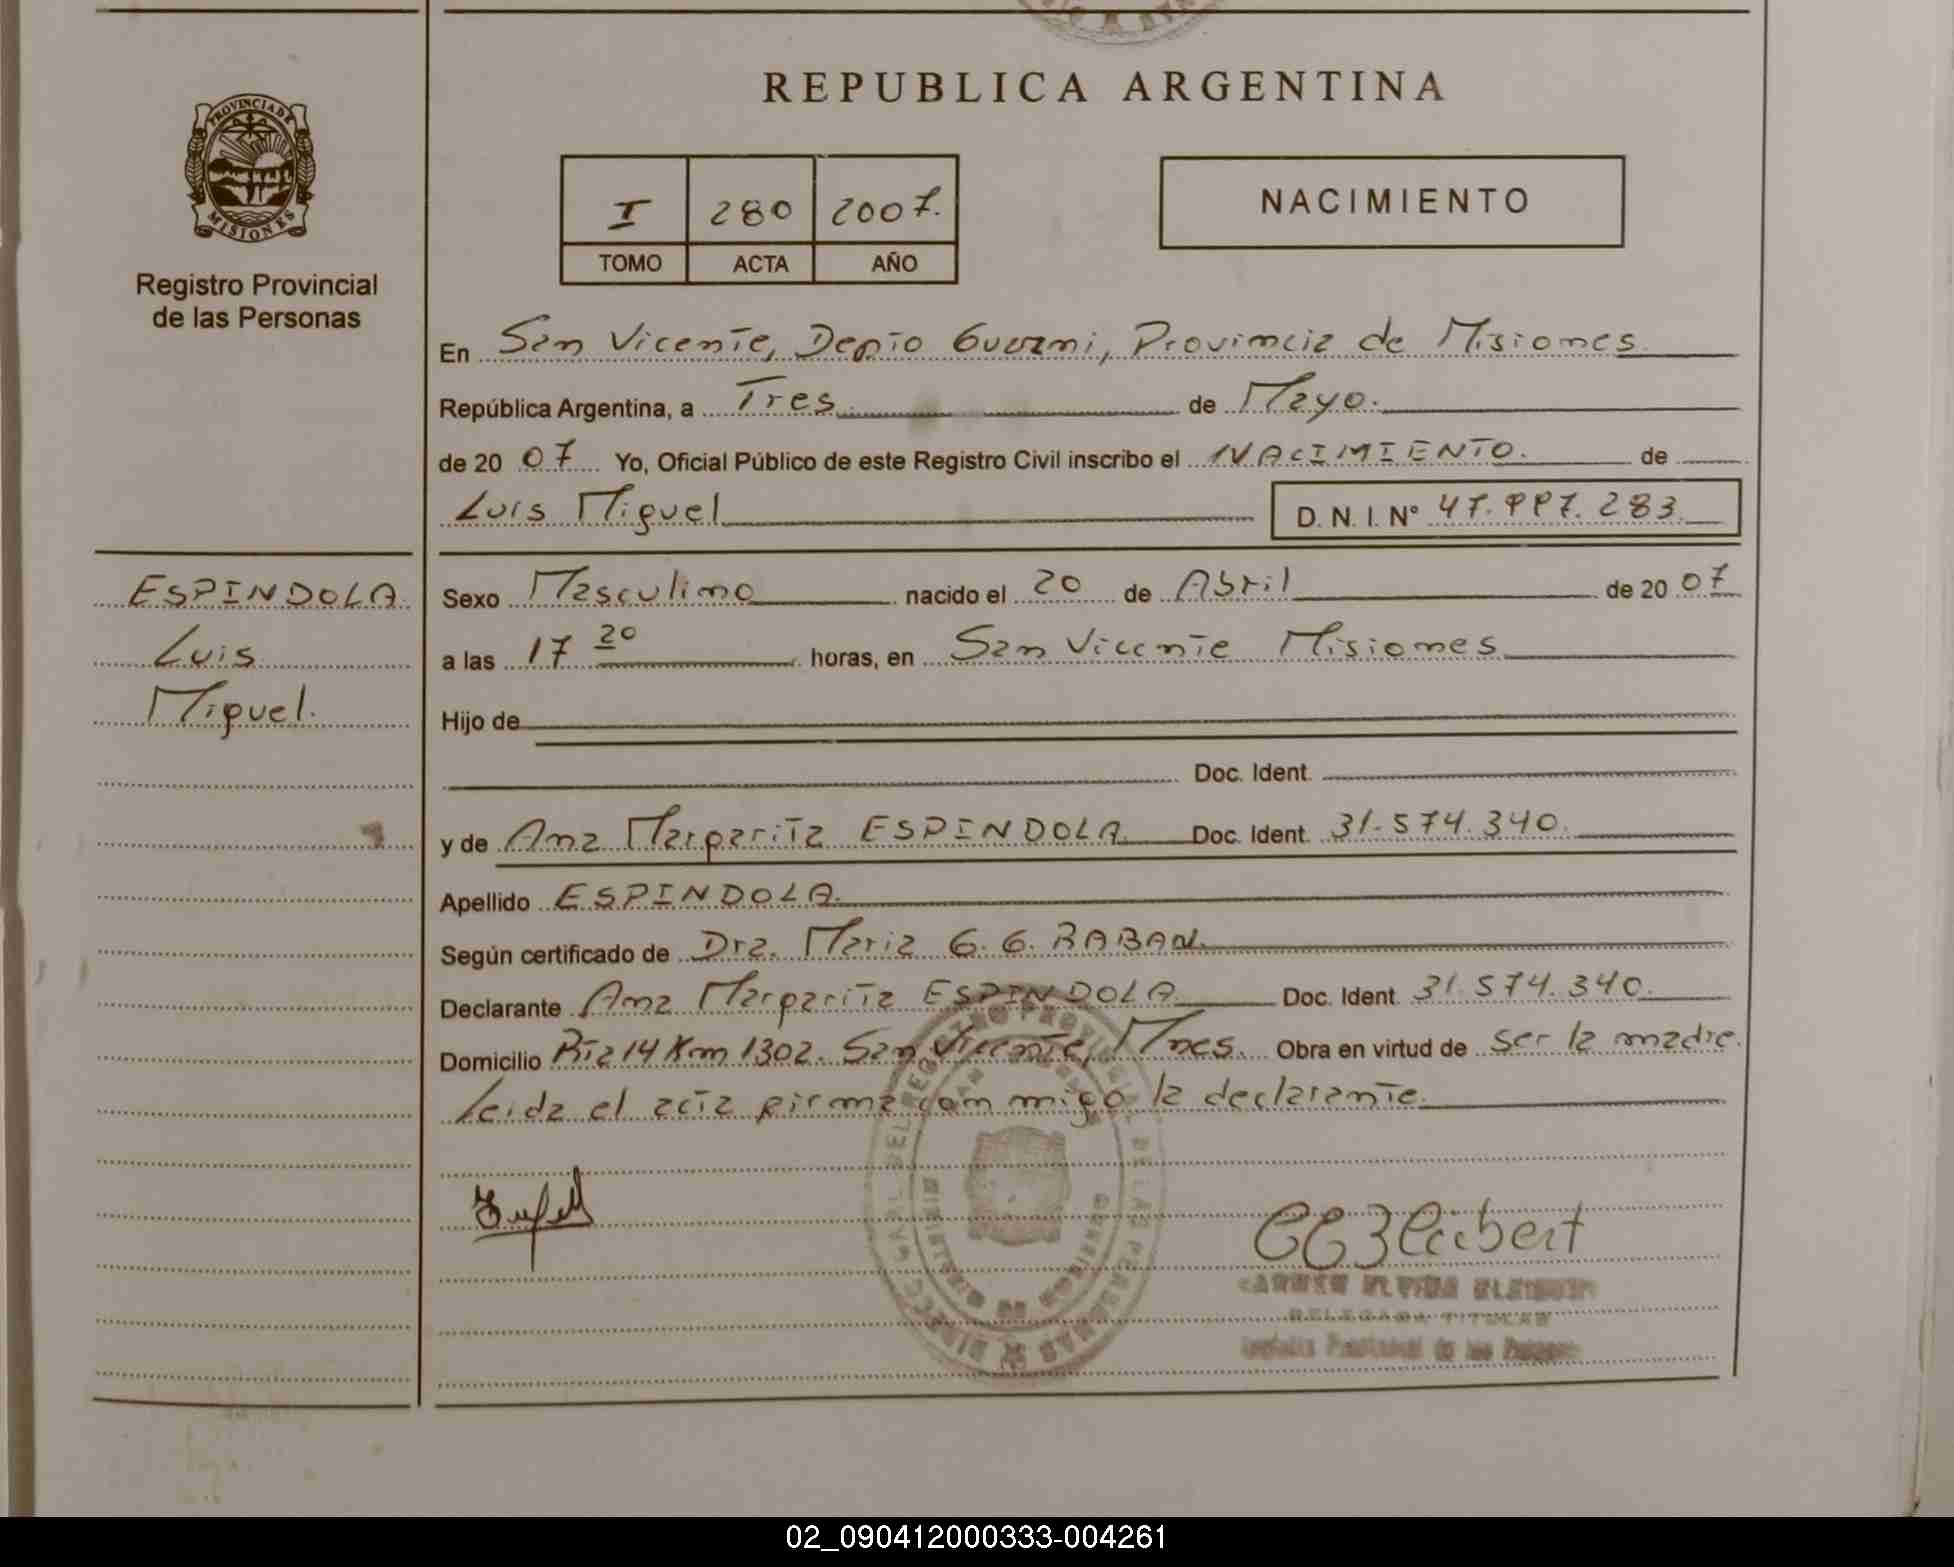 REPUBLICA ARGENTINA
PROVINCIA DE
MISIONES
Registro Provincial
de las Personas
I 280 2007.
TOMO ACTA AÑO
NACIMIENTO
En San Vicente, Depto Guarani, Provincia de Misiones
República Argentina, a Tres de Mayo.
de 20 07 Yo, Oficial Público de este Registro Civil inscribo el NACIMIENTO. de
Luis Miguel D. N. I. Nº 47.997.283
ESPINDOLA
Luis
Miguel.
Sexo Masculino nacido el 20 de Abril de 20 07
a las 17 20 horas, en San Vicente Misiones
Hijo de
Doc. Ident.
y de Ana Margarita ESPINDOLA Doc. Ident. 31.574.340.
Apellido ESPINDOLA.
Según certificado de Dra. Maria G. G. RABAN.
Declarante Ana Margarita ESPINDOLA Doc. Ident. 31.574.340.
Domicilio Rta 14 Km 1302. San Vicente, Mnes. Obra en virtud de ser la madre.
Leida el acta firma con migo la declarante.
DELEGADA TITULAR
02_090412000333-004261